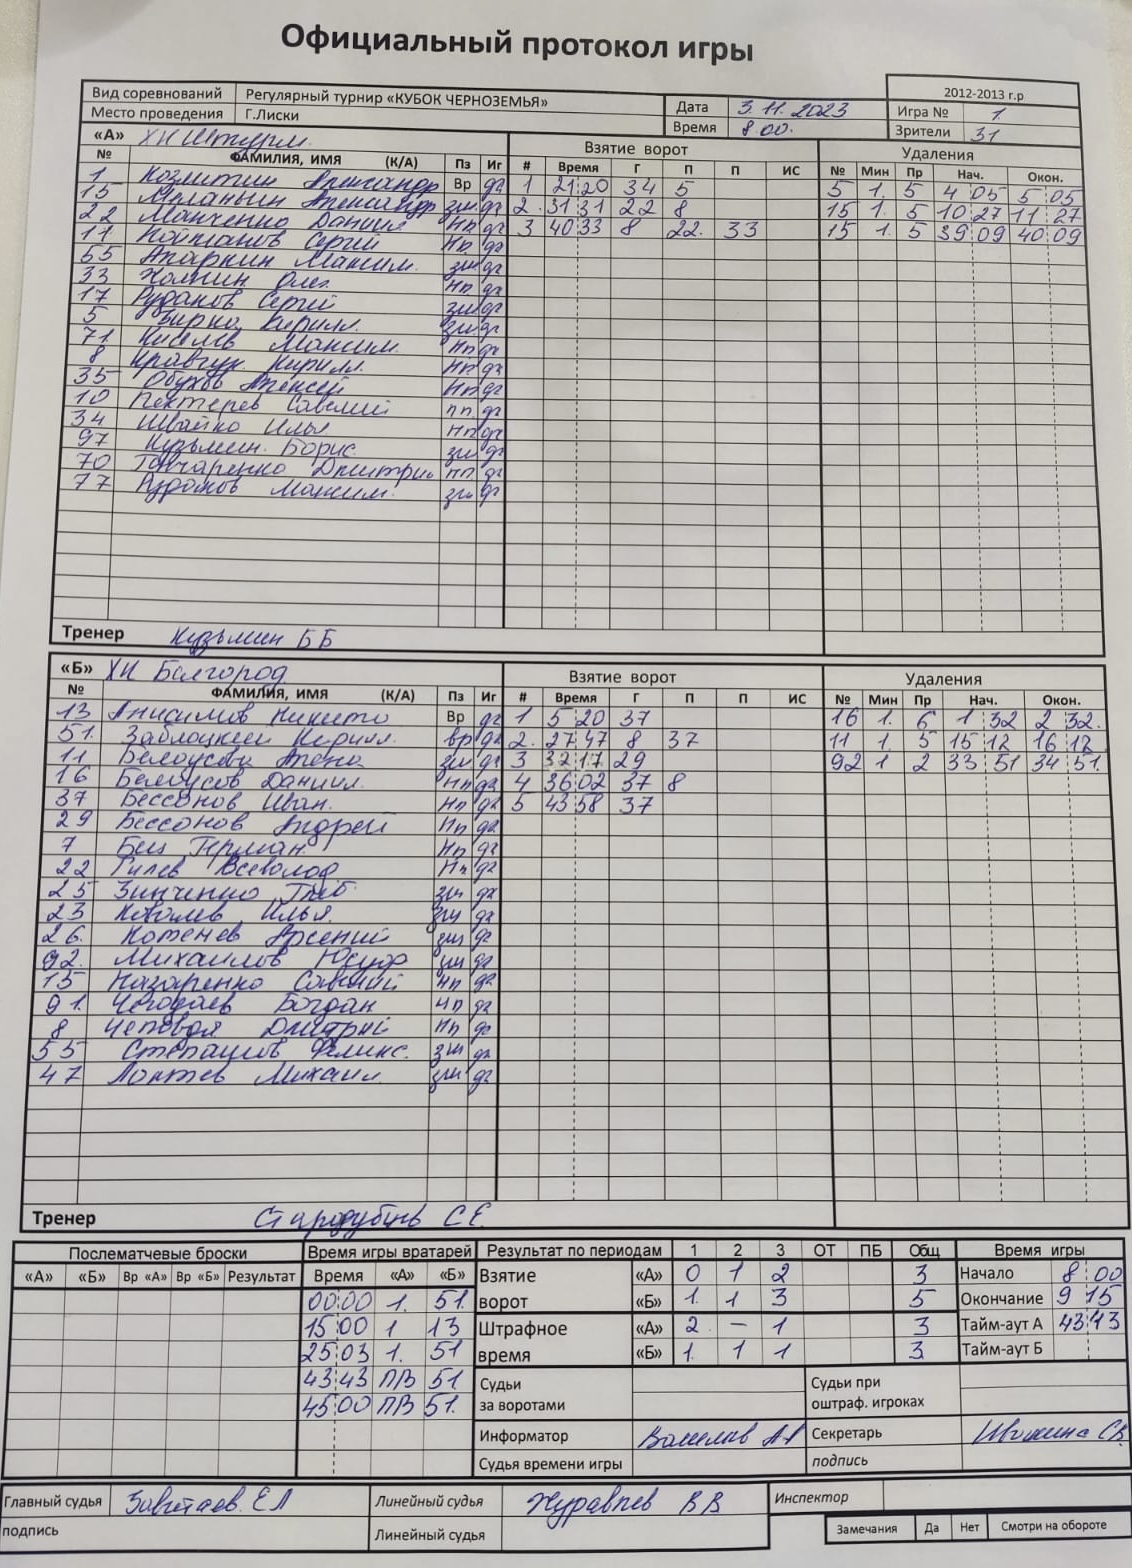 Официальный протокол игры
2012-2013 г.р
Вид соревнований Регулярный турнир «КУБОК ЧЕРНОЗЕМЬЯ» Дата 3.11.2023 Игра № 1
Место проведения Г.Лиски Время 8 00. Зрители 31
«А» ХК Штурм. Взятие ворот Удаления
№ ФАМИЛИЯ, ИМЯ (К/А) Пз Иг # Время Г П П ИС № Мин Пр Нач. Окон.
1 Козлитин Александр Вр да 1 21 20 34 5 5 1. 5 4 05 5 05
15 Меланьин Александр зщ да 2. 31 31 22 8 15 1. 5 10 27 11 27
22 Манченко Даниил Нп да 3 40 33 8 22. 33 15 1. 5 39 09 40 09
11 Сергей Нп да
65 Апаркин Максим. зщ да
33 Жолнин Олег. Нп да
17 Рудаков Сергей зщ да
5 Бирко Кирилл. зщ да
71 Киселев Максим Нп да
8 Кравчук Кирилл. Нп да
35 Обухов Алексей Нп да
10 Пехтерев Савелий нп. да
34 Швайко Илья Нп да
97 Кузьмин. Борис зщ да
70 Гончаренко Дмитрий нп. да
77 Рудаков Максим. зщ да
Тренер Кузьмин Б Б
«Б» ХК Белгород Взятие ворот Удаления
№ ФАМИЛИЯ, ИМЯ (К/А) Пз Иг # Время Г П П ИС № Мин Пр Нач. Окон.
13 Анисимов Никита Вр да 1 5 20 37 16 1. 6 1 32 2 32.
51. Заблоцкий Кирилл. вр да 2. 27 47 8 37 11 1. 5 15 12 16 12
11 Белоусова зщ да 3 32 17 29 92 1 2 33 51 34 51.
16 Белоусов Даниил. Нп да 4 36 02 37 8
37 Бессонов Иван. Нп да 5 43 58 37
29 Бессонов Андрей Нп да
7 Бец Герман. Нп да
22 Гилев Всеволод Нп да
25 Зинченко Глеб зщ да
23 Ковалев Илья. зщ да
26. Котенев Арсений зщ да
92. Михайлов Юсуф зщ да
15 Назаренко Савелий нп да
91. Чегодаев Богдан нп да
8 Чеповой Дмитрий Нп да
55 Степашов Феликс. зщ да
47 Локтев Михаил. зщ да
Тренер Стародубцев С Е.
Послематчевые броски Время игры вратарей Результат по периодам 1 2 3 ОТ ПБ Общ Время игры
«А» «Б» Вр «А» Вр «Б» Результат Время «А» «Б» Взятие ворот «А» 0 1 2 3 Начало 8 00
00 00 1. 51. «Б» 1. 1 3 5 Окончание 9 15
15 00 1 13 Штрафное время «А» 2 – 1 3 Тайм-аут А 43 43
25 03 1. 51 «Б» 1 1 1 3. Тайм-аут Б
43 43 ПВ 51 Судьи за воротами Судьи при оштраф. игроках
45 00 ПВ 51.
Информатор Секретарь
Судья времени игры подпись
Главный судья Линейный судья Журавлев В В Инспектор
подпись Линейный судья Замечания Да Нет Смотри на обороте